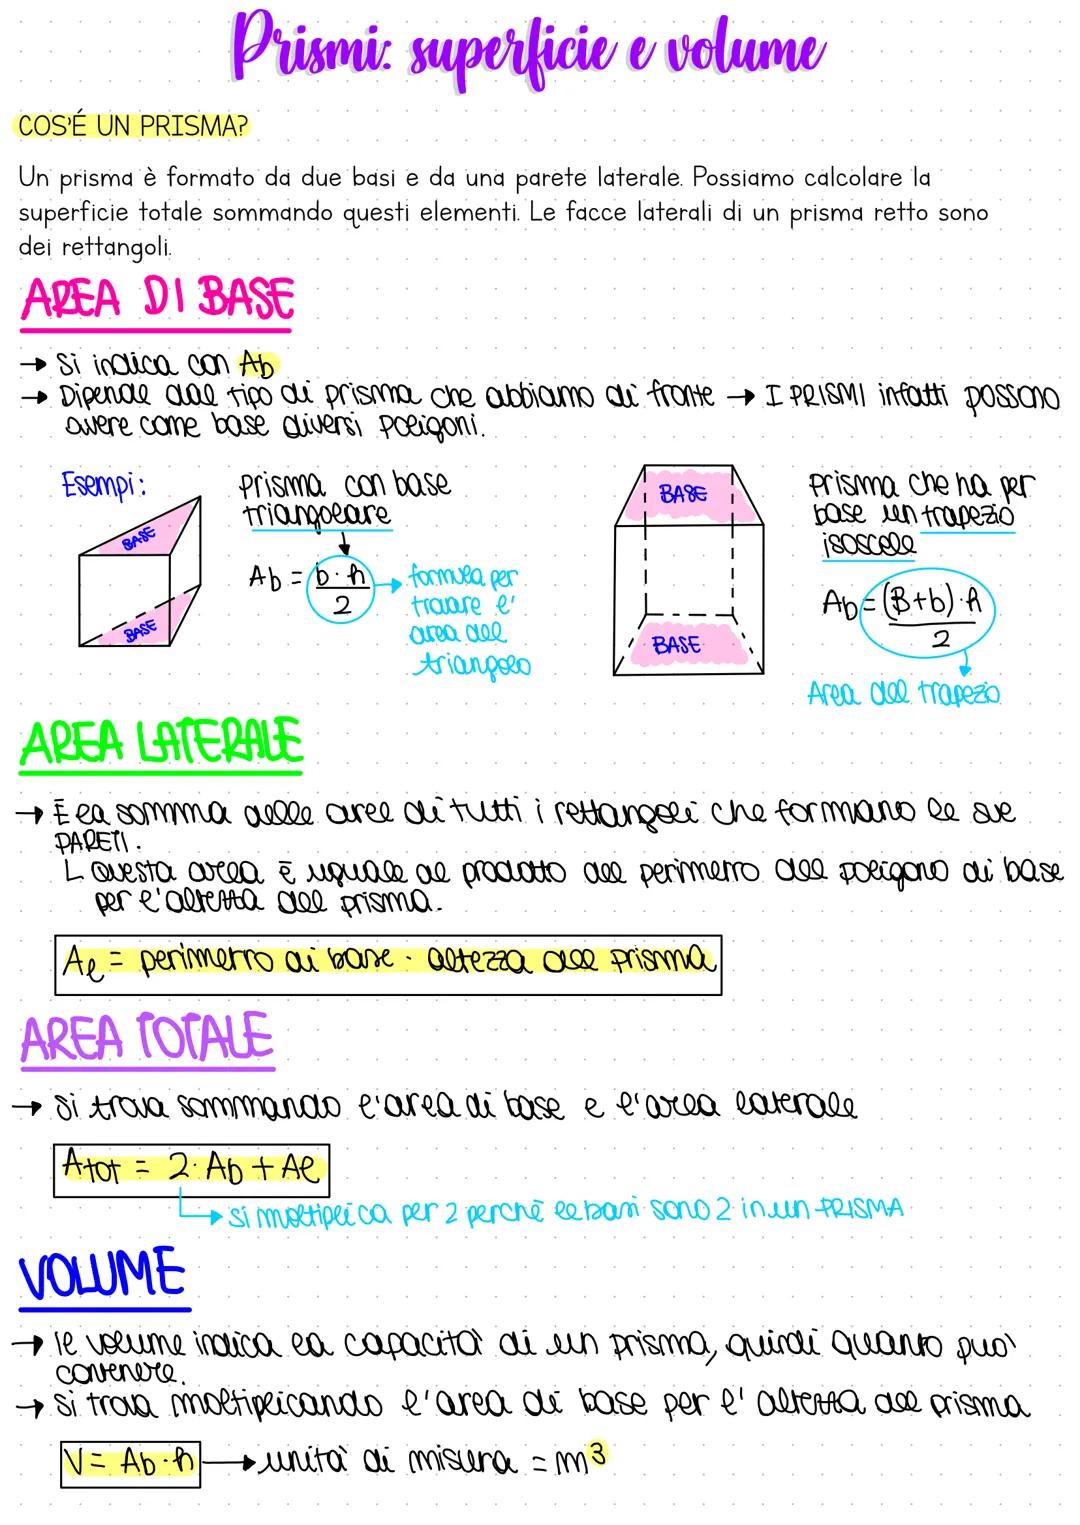 Prismi: superficie e volume
COS'É UN PRISMA?
Un prisma è formato da due basi e da una parete laterale. Possiamo calcolare la
superficie totale sommando questi elementi. Le facce laterali di un prisma retto sono
dei rettangoli.
AREA DI BASE
→ Si indica con Ab
→ Dipende dal tipo di prisma che abbiamo di fronte → I PRISMI infatti possono
avere come base diversi poligoni.
Esempi:
BASE
BASE
prisma con base
triangolare
Ab = b·h / 2
→ formula per
trovare l'
area del
triangolo
BASE
BASE
Prisma che ha per
base un trapezio
isoscele
Ab = (B+b)·h / 2
Area del trapezio
AREA LATERALE
→ È la somma delle aree di tutti i rettangoli che formano le sue
PARETI.
L Questa area è uguale al prodotto del perimetro del poligono di base
per l'altezza del prisma.
Al = perimetro di base · altezza del prisma
AREA TOTALE
→ Si trova sommando l'area di base e l'area laterale
Atot = 2·Ab + Al
→ si moltiplica per 2 perché le basi sono 2 in un PRISMA
VOLUME
→ Il volume indica la capacità di un prisma, quindi quanto può
contenere.
→ Si trova moltiplicando l'area di base per l'altezza del prisma
V = Ab·h → unità di misura = m³